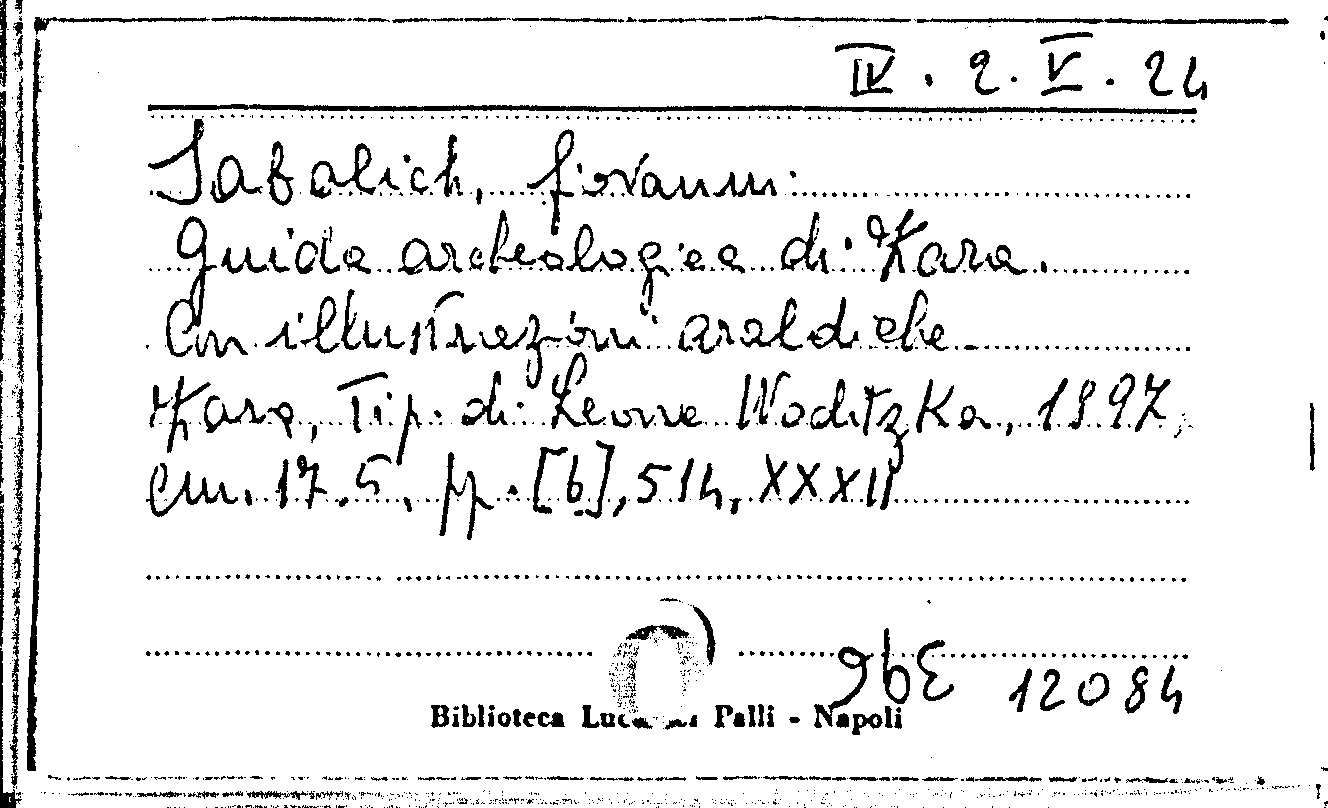 IV. 2. V. 24
Sabalich, Giovanni.
Guida archeologica di Zara.
Con illustrazioni araldiche.
Zara, Tip. di Leone Woditzka, 1897,
cm. 17.5, pp. [6], 514, XXXII
12084
Biblioteca Palli - Napoli